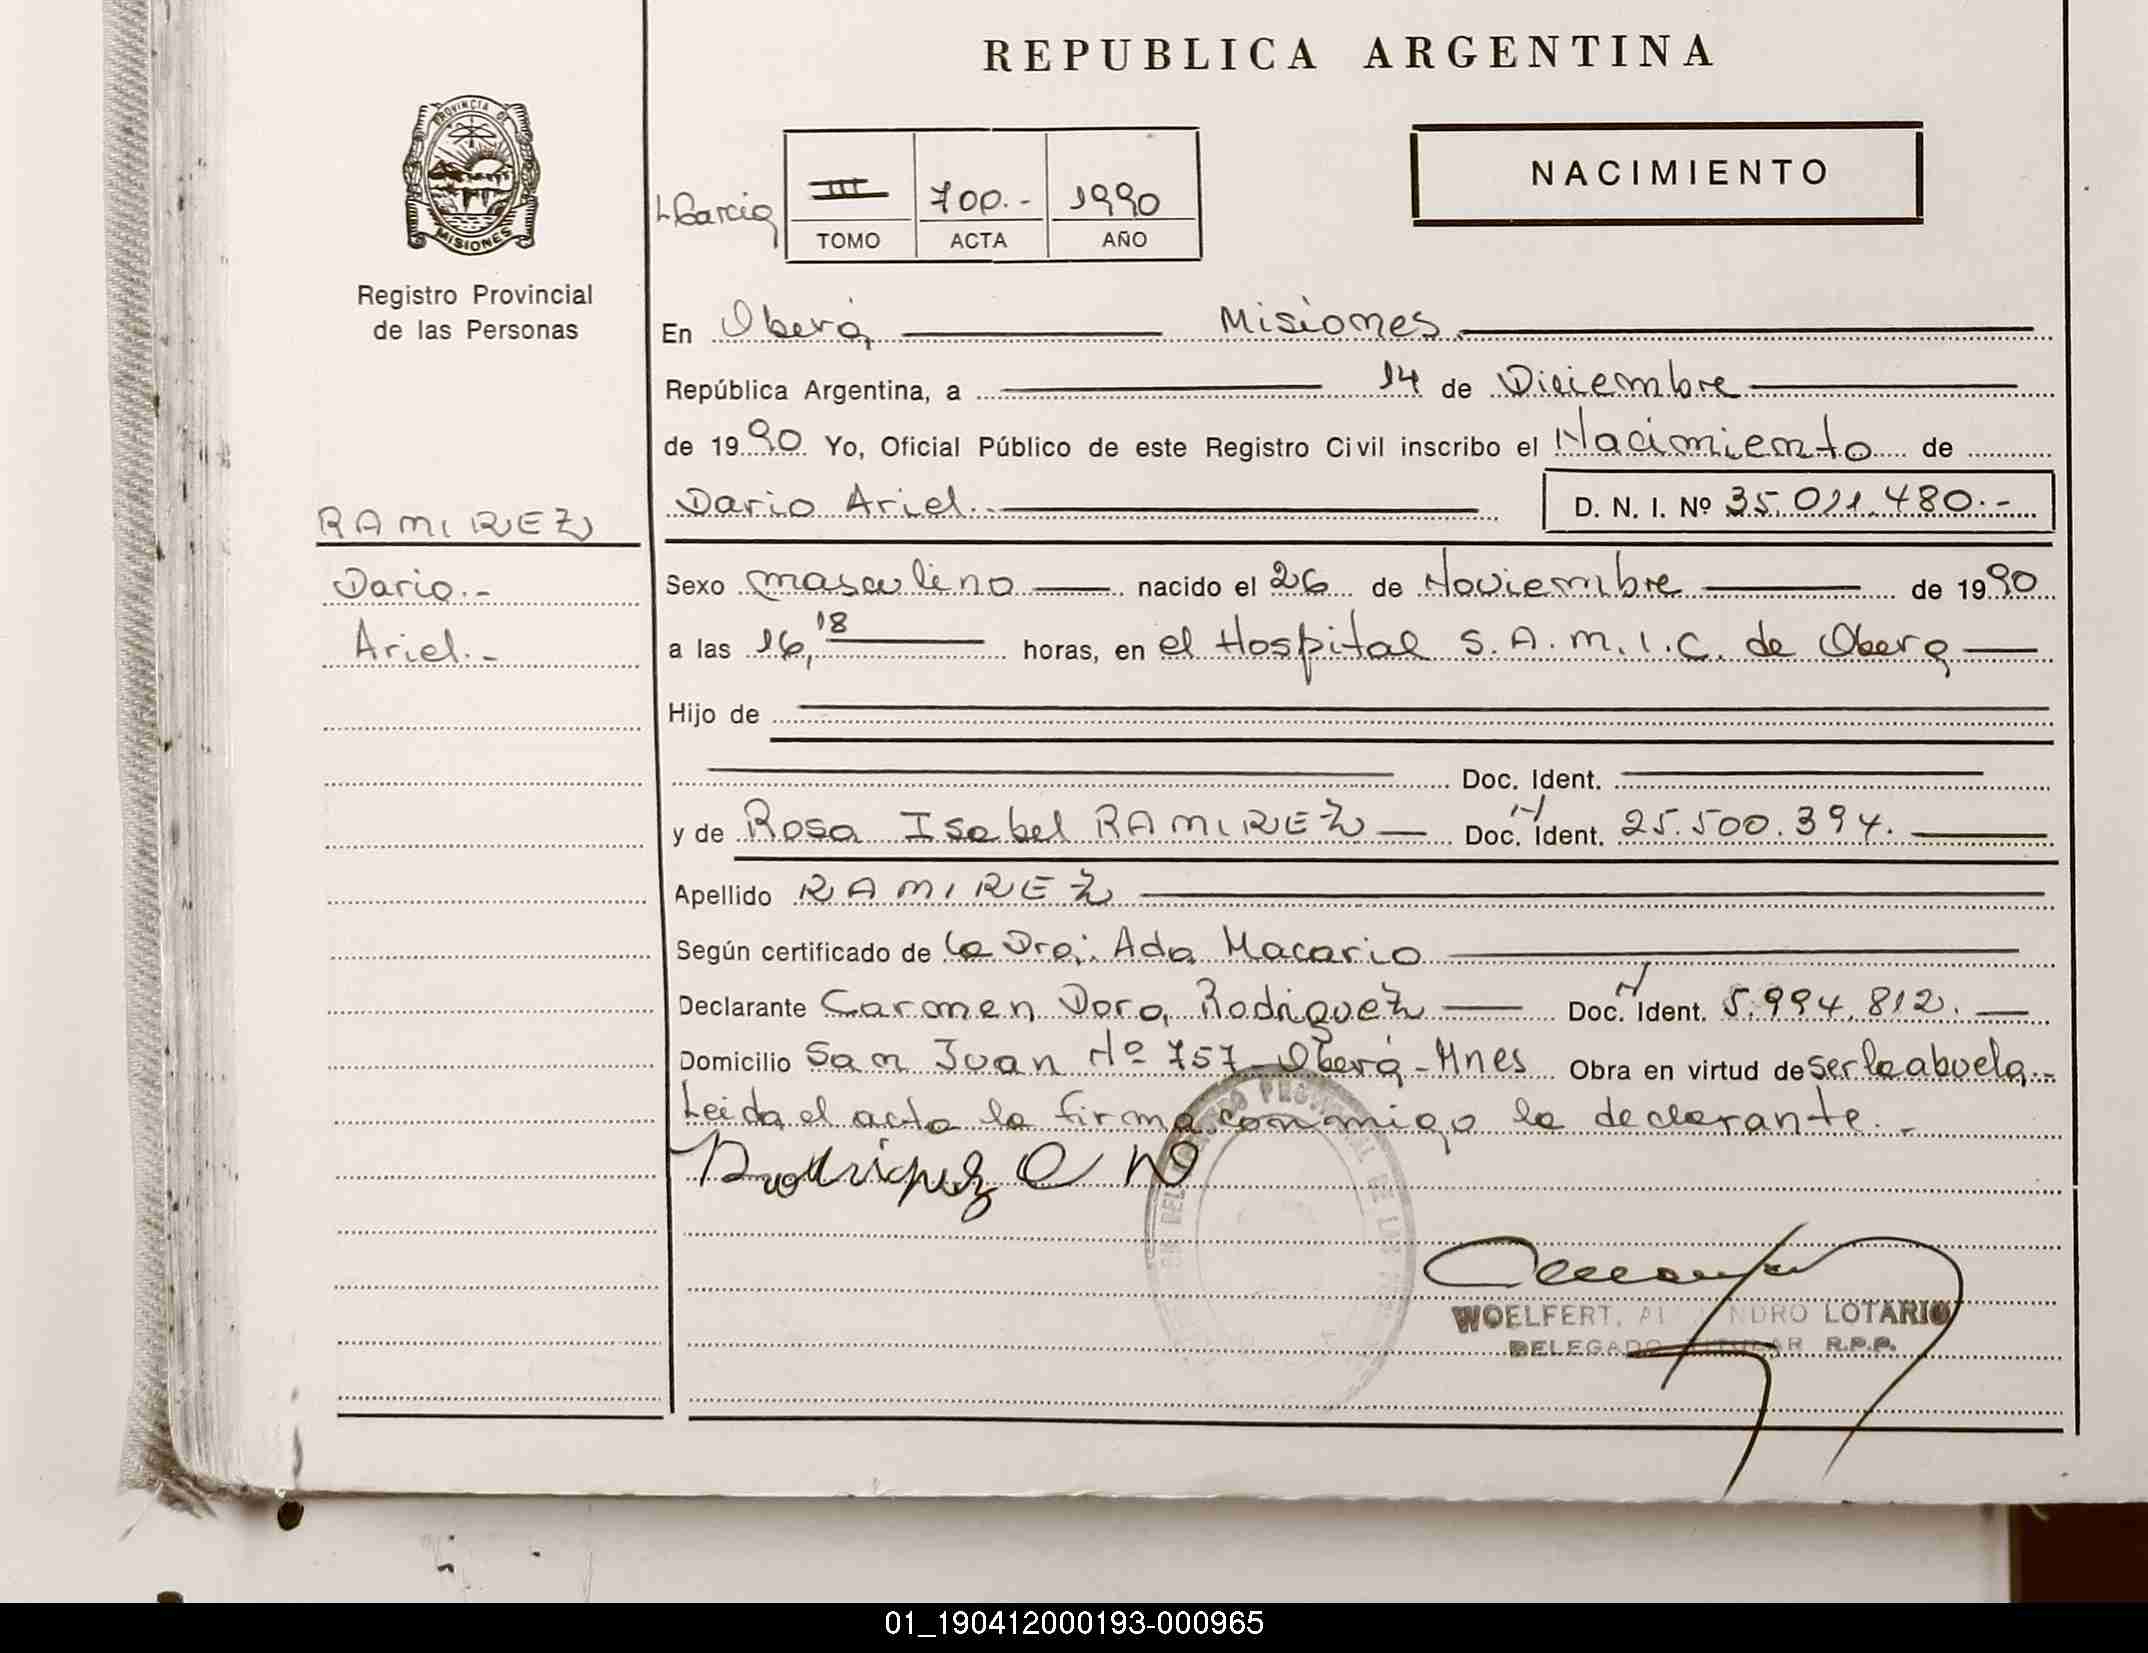 REPUBLICA ARGENTINA
PROVINCIA DE
MISIONES
Registro Provincial
de las Personas
NACIMIENTO
L Garcia
III 700.- 1990
TOMO ACTA AÑO
En Oberá Misiones
República Argentina, a 14 de Diciembre
de 1990 Yo, Oficial Público de este Registro Civil inscribo el Nacimiento de
RAMIREZ
Dario.-
Ariel.-
Dario Ariel.- D. N. I. Nº 35.011.480.-
Sexo masculino nacido el 26 de Noviembre de 1990
a las 16,18 horas, en el Hospital S.A.M.I.C. de Obera
Hijo de
Doc. Ident.
y de Rosa Isabel RAMIREZ Doc. Ident. 25.500.394.
Apellido RAMIREZ
Según certificado de la Dra. Ada Macario
Declarante Carmen Dora Rodriguez Doc. Ident. 5.994.812.
Domicilio San Juan Nº 757 - Oberá - Mnes Obra en virtud de ser la abuela.-
Leida el acta la firma conmigo la declarante.-
Rodriguez C D
WOELFERT, LOTARIO
DELEGADO TITULAR R.P.P.
01_190412000193-000965